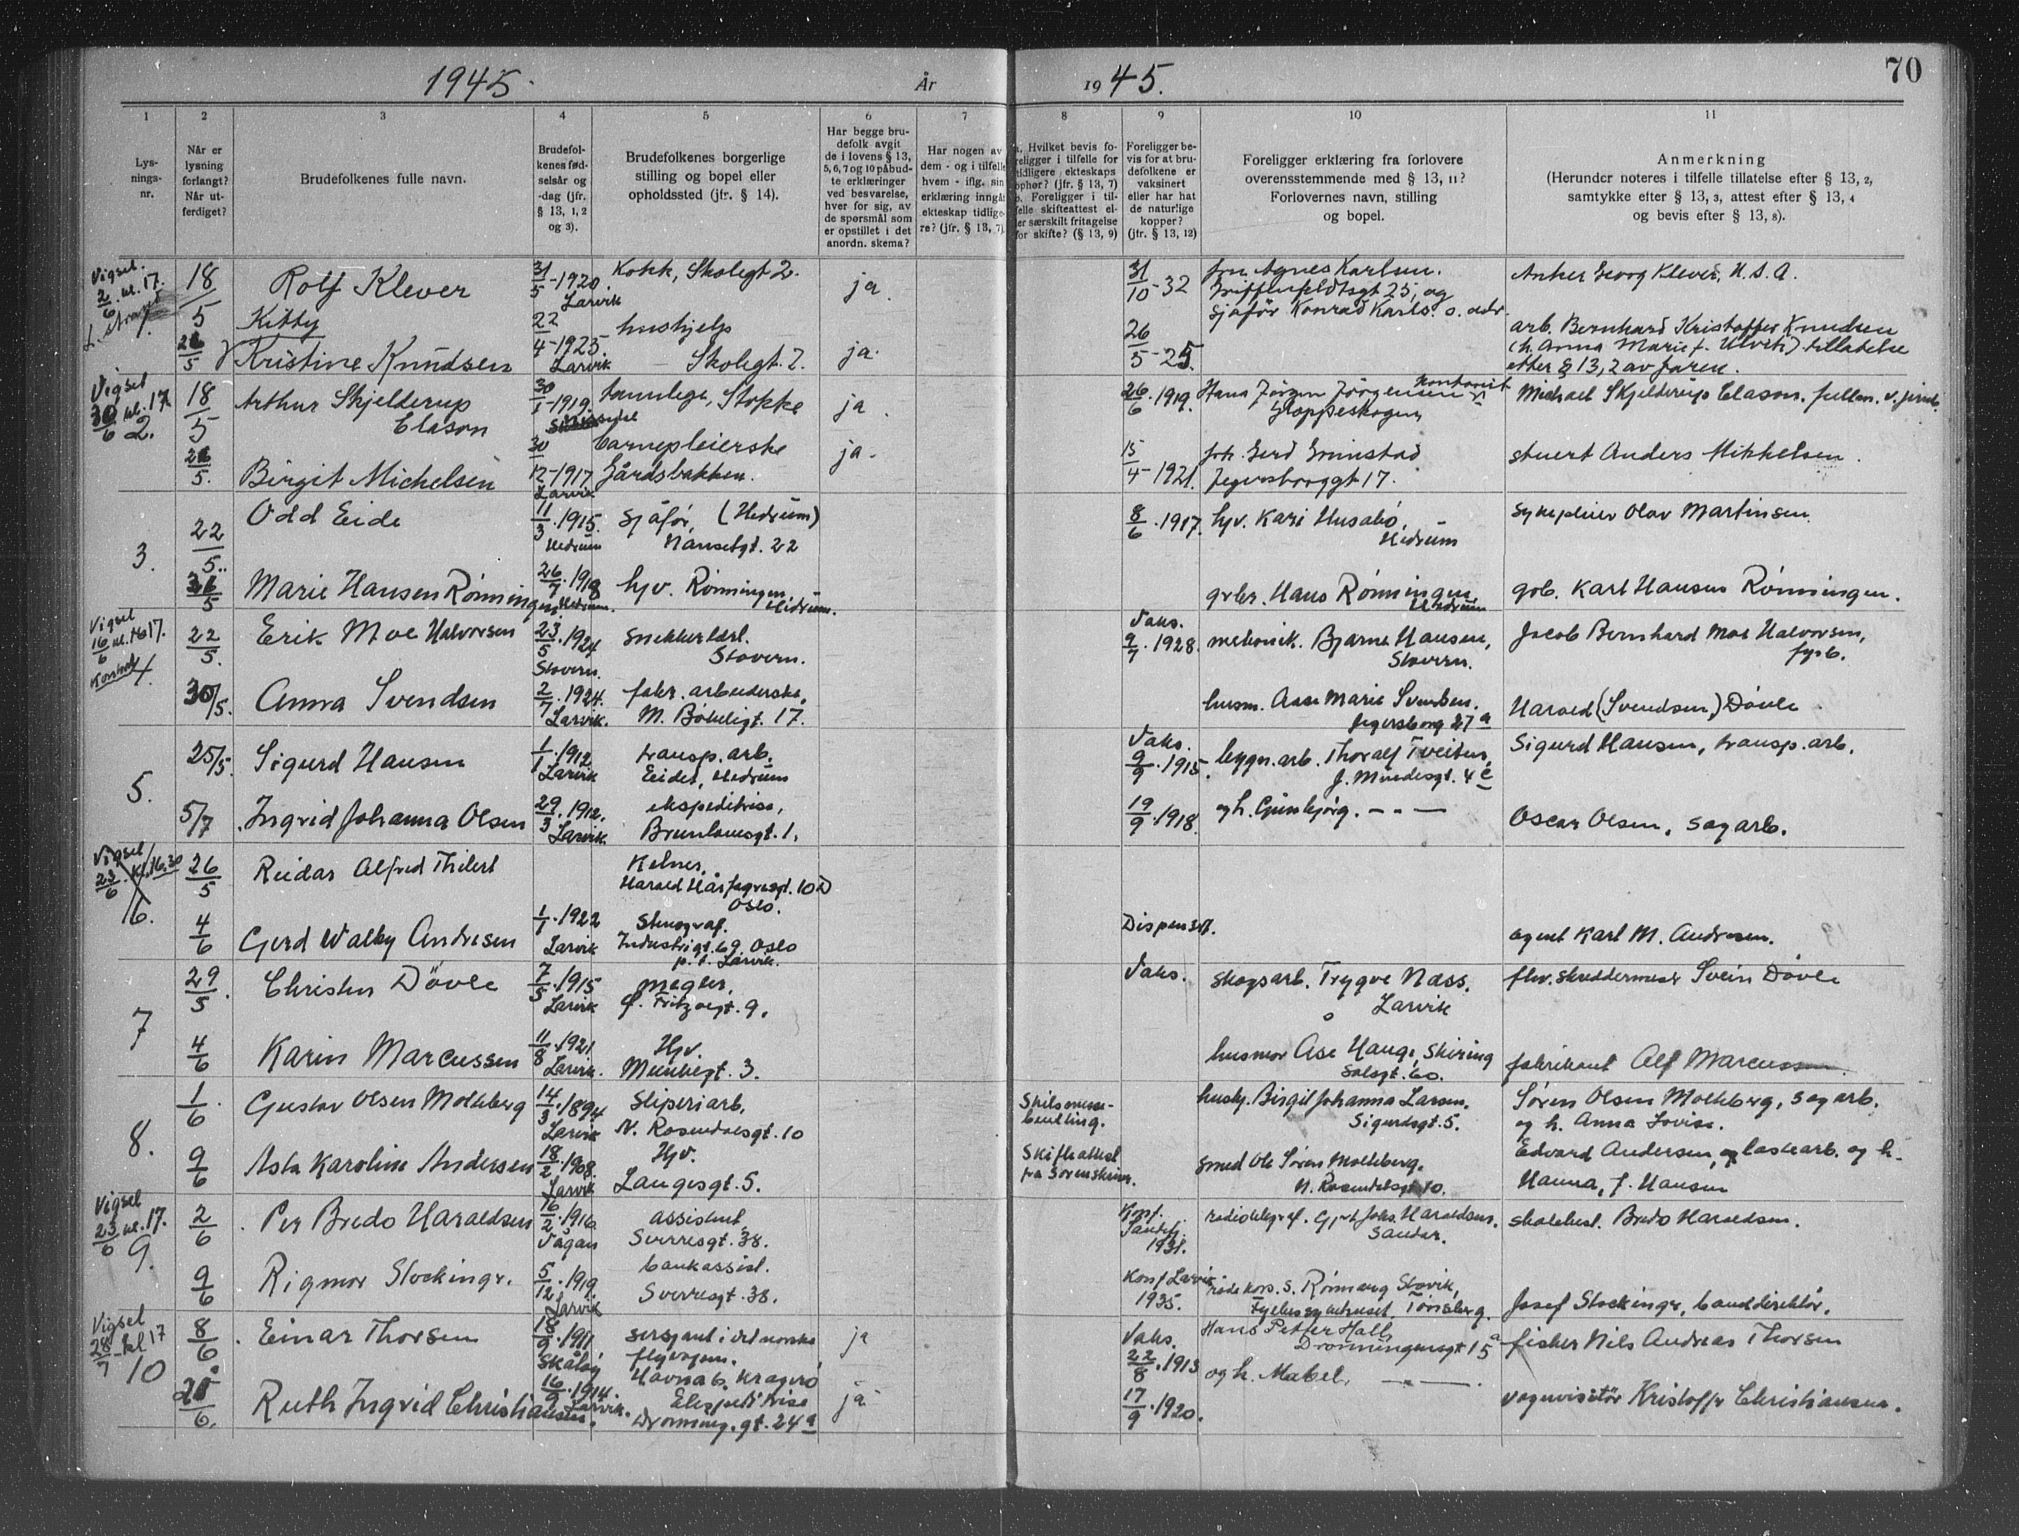 1945.
År
19 45.
70
1
2
3
4
5
6
7
8
9
10
11
Lys-
nings-
nr.
Når er
lysning
forlangt?
Når ut-
ferdiget?
Brudefolkenes fulle navn.
Brudefol-
kenes fød-
selsår og
-dag (jfr.
§ 13, 1, 2
og 3).
Brudefolkenes borgerlige
stilling og bopel eller
opholdssted (jfr. § 14).
Har begge bru-
defolk avgit
de i lovens § 13,
5, 6, 7 og 10 påbud-
te erklæringer
ved besvarelse,
hver for sig, av
de spørsmål som
er opstillet i det
anordn. skema?
Har nogen av
dem - og i tilfelle
hvem - iflg. sin
erklæring inngåt
ekteskap tidlige-
re? (jfr. § 13, 7).
a. Hvilket bevis fo-
religger i tilfelle for
tidligere ekteskaps
ophør? (jfr. § 13, 7)
b. Foreligger i til-
felle skifteattest el-
ler særskilt fritagelse
for skifte? (§ 13, 9)
Foreligger be-
vis for at bru-
defolkene er
vaksinert
eller har hat
de naturlige
kopper?
(jfr. § 13, 12)
Foreligger erklæring fra forlovere
overensstemmende med § 13, 11?
Forlovernes navn, stilling
og bopel.
Anmerkning
(Herunder noteres i tilfelle tillatelse efter § 13, 2,
samtykke efter § 13, 3, attest efter § 13, 4
og bevis efter § 13, 8).
Vigsel.
2/6 kl. 17.
1.
18/5 Rolf Klever 31/5-1920. Larvik Kokk, Skolegt 2. ja 31/10-32 Agnes Karlsen. Anker Georg Klever, U.S.A.
Griffenfeldtsgt 25, og
sjåfør Konrad Karls.
26/5 Kitty
Kristine Knudsen 22/4-1925. Larvik hushjelp
Skolegt. 2. ja. 26/5-25. arb. Bernhard Kristoffer Knudsen
(h. Anna Marie f. ) tillatelse
etter § 13, 2 av faren.
Vigsel
30/6 kl. 17
2.
18/5 Arthur Skjelderup
Elason 30/1-1919. tannlege, Stokke ja. 26/6.1919. Hans Jørgen Jørgensen kontorist
Gloppeskogen Michael Skjelderup Elason,
26/5. Birgit Michelsen 30/12-1917 Larvik barnepleierske
Gårdsbakken. ja. 15/4-1921. Gerd Grimstad
Jegersborggt 17. stuert Anders Mikkelsen.
3.
22/5. Odd Eide 11/3.1915. Hedrum sjåför, (Hedrum)
Nansetgt. 22 8/6.1917. hjv. Kari Husabö,
Hedrum Olav Martinsen.
26/5 Marie Hansen Rønningen. 26/7.1918 Hedrum. hjv. Rønningen,
Hedrum. grbr. Hans Rønningen,
Hedrum gbr. Karl Hansen Rønningen.
Vigsel
16/6 kl. 17.
4.
22/5. Erik Moe Halvorsen 23/5.1924 Stavern. snekkerlærl.
Stavern. Vaks.
9/7.1928. mekanik. Bjarne Hansen,
Stavern. Jacob Bernhard Moe Halvorsen,
30/5. Anna Svendsen 2/7.1924. Larvik. fabr. arbeiderske,
M. Bökeligt. 17. husm. Aase Marie Svendsen.
Jegersborg 27 a Harald (Svendsen) Døvle
5.
25/5. Sigurd Hansen 1/1.1912 Larvik transp. arb.
Eidet, Hedrum Vaks.
9/9.1915. bygn. arb. Thoralf Tveiten,
J. Mindesgt. 4 c Sigurd Hansen, transp. arb.
5/7 Ingrid Johanna Olsen 29/3.1912. Larvik. ekspeditrise,
Brunlanesgt. 1. 19/9.1918. og h. Gunbjörg. - " - Oscar Olsen, sagarb.
Vigsel
23/6 kl. 16.30
6.
26/5 Reidar Alfred Thilert Kelner,
Harald Hårfagresgt. 10 D
Oslo.
4/6 Gerd Walby Andresen 1/1.1922 Larvik Stenograf.
Industrigt. 69, Oslo
p. t. Larvik. Dispensert. agent Karl M. Andresen.
7
29/5. Christen Dövle 7/5.1915 Larvik megler,
O. Fritzøegt. 9. Vaks. skogsarb. Trygve Næss,
Larvik fhv. skreddermester Svein Dövle
4/6 Karin Marcussen 11/8.1921 Larvik. Hjv.
Munkegt. 3. husmor Åse Hauge, Skiring
salsgt. 60. fabrikant Alf Marcussen.
8.
1/6. Gustav Olsen Molkberg 14/3.1894 Larvik Sliperiarb.
N. Rosendalsgt. 10 Skilsmisse-
bevilling. hushj. Birgit Johanna Larsen.
Sigurdsgt. 5. Søren Olsen Molkberg, sagarb.
og h. Anna Lovise.
9/6 Asta Karoline Andersen 18/2.1908. Larvik Hjv.
Langesgt. 5. Skifteattest
fra Sorenskriv. smed Ole Søren Molkberg.
N. Rosendalsgt 10. Edvard Andersen, lastearb. og h.
Hanna, f. Hansen
Vigsel
23/6 kl. 17.
9.
2/6. Per Bredo Haraldsen 16/2.1916 Vågan assistent,
Sverresgt. 38. Konf.
Sandefj.
1931. radiotelegraf. Gert Johs. Haraldsen.
Sandar. skolebest. Bredo Haraldsen.
9/6 Rigmor Stockinger. 5/12.1919. Larvik bankassist.
Sverresgt. 38. Konf Larvik
1935. røde kors. s. Rønnaug Stavik,
Fylkessykehuset Tønsberg. Josef Stockinger, banddirektör.
Vigsel
28/7 - kl 17
10
8/6. Einar Thorsen 18/9.1911 Skåtøy sersjant i det norske
flyvapen.
Havna b. Kragerö ja Vaks.
22/8.1913 Hans Petter Hall,
Dronningensgt 15 a fisker Nils Andreas Thorsen
og h. Mabel. - " -
20/6. Ruth Ingrid Christiansen. 16/9.1914. Larvik. Ekspeditrise
Dronning. gt. 24 a ja 17/9.1920. vognvisitör Kristoffer Christiansen.